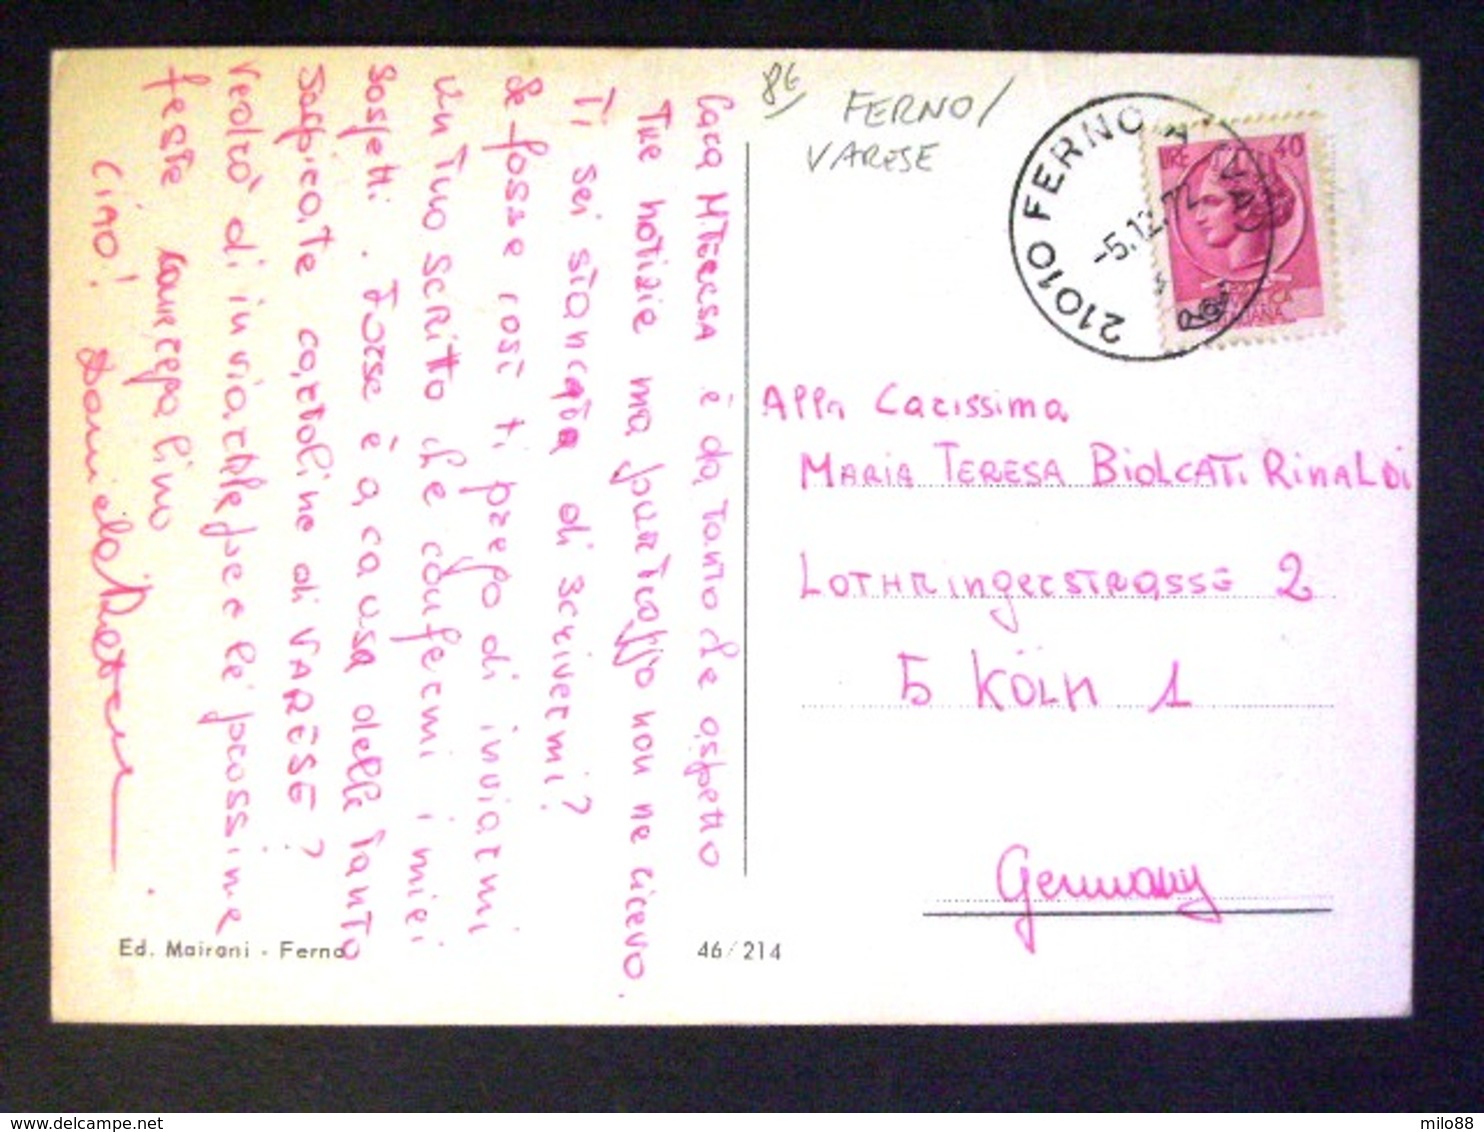 8€
FERNO/
VARESE
21010 FERNO (VA)
-5.12.72
LIRE 40
Cara M.TERESA è da tanto che aspetto
tue notizie ma purtroppo non ne ricevo.
Ti sei stancata di scrivermi?
Se fosse così ti prego di inviarmi
un tuo scritto che confermi i miei
sospetti. Forse è a causa delle tanto
sospirate cartoline di VARESE?
Vedrò di inviartele per le prossime
feste
CIAO! Daniela
Alla Carissima
MARIA TERESA BIOLCATI RINALDI
LOTHRINGERSTRASSE 2
5 KÖLN 1
Germany
Ed. Mairani - Ferno
46/214
milo88